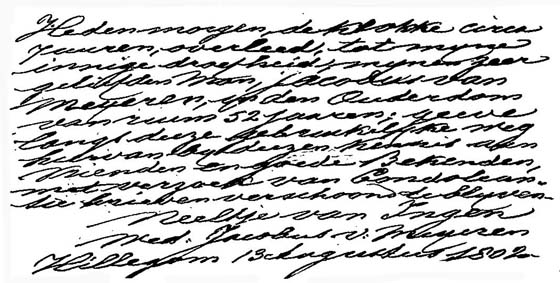 Heden morgen de klokke circa
7 uuren, overleed, tot myne
innige droefheid, mynen zeer
geliefden Man, Jacobus van
Meyeren, in den Ouderdom
van ruim 52 Jaaren; geeve
langs deeze gebruikelijke weg
hiervan by deezen kennis aan
Vrienden en goede Bekenden,
met verzoek van Condolean-
tie brieven verschoond te blyven.
Neeltje van Tngen
wed. Jacobus v. Meyeren
Hillegom 13 Augustus 1802